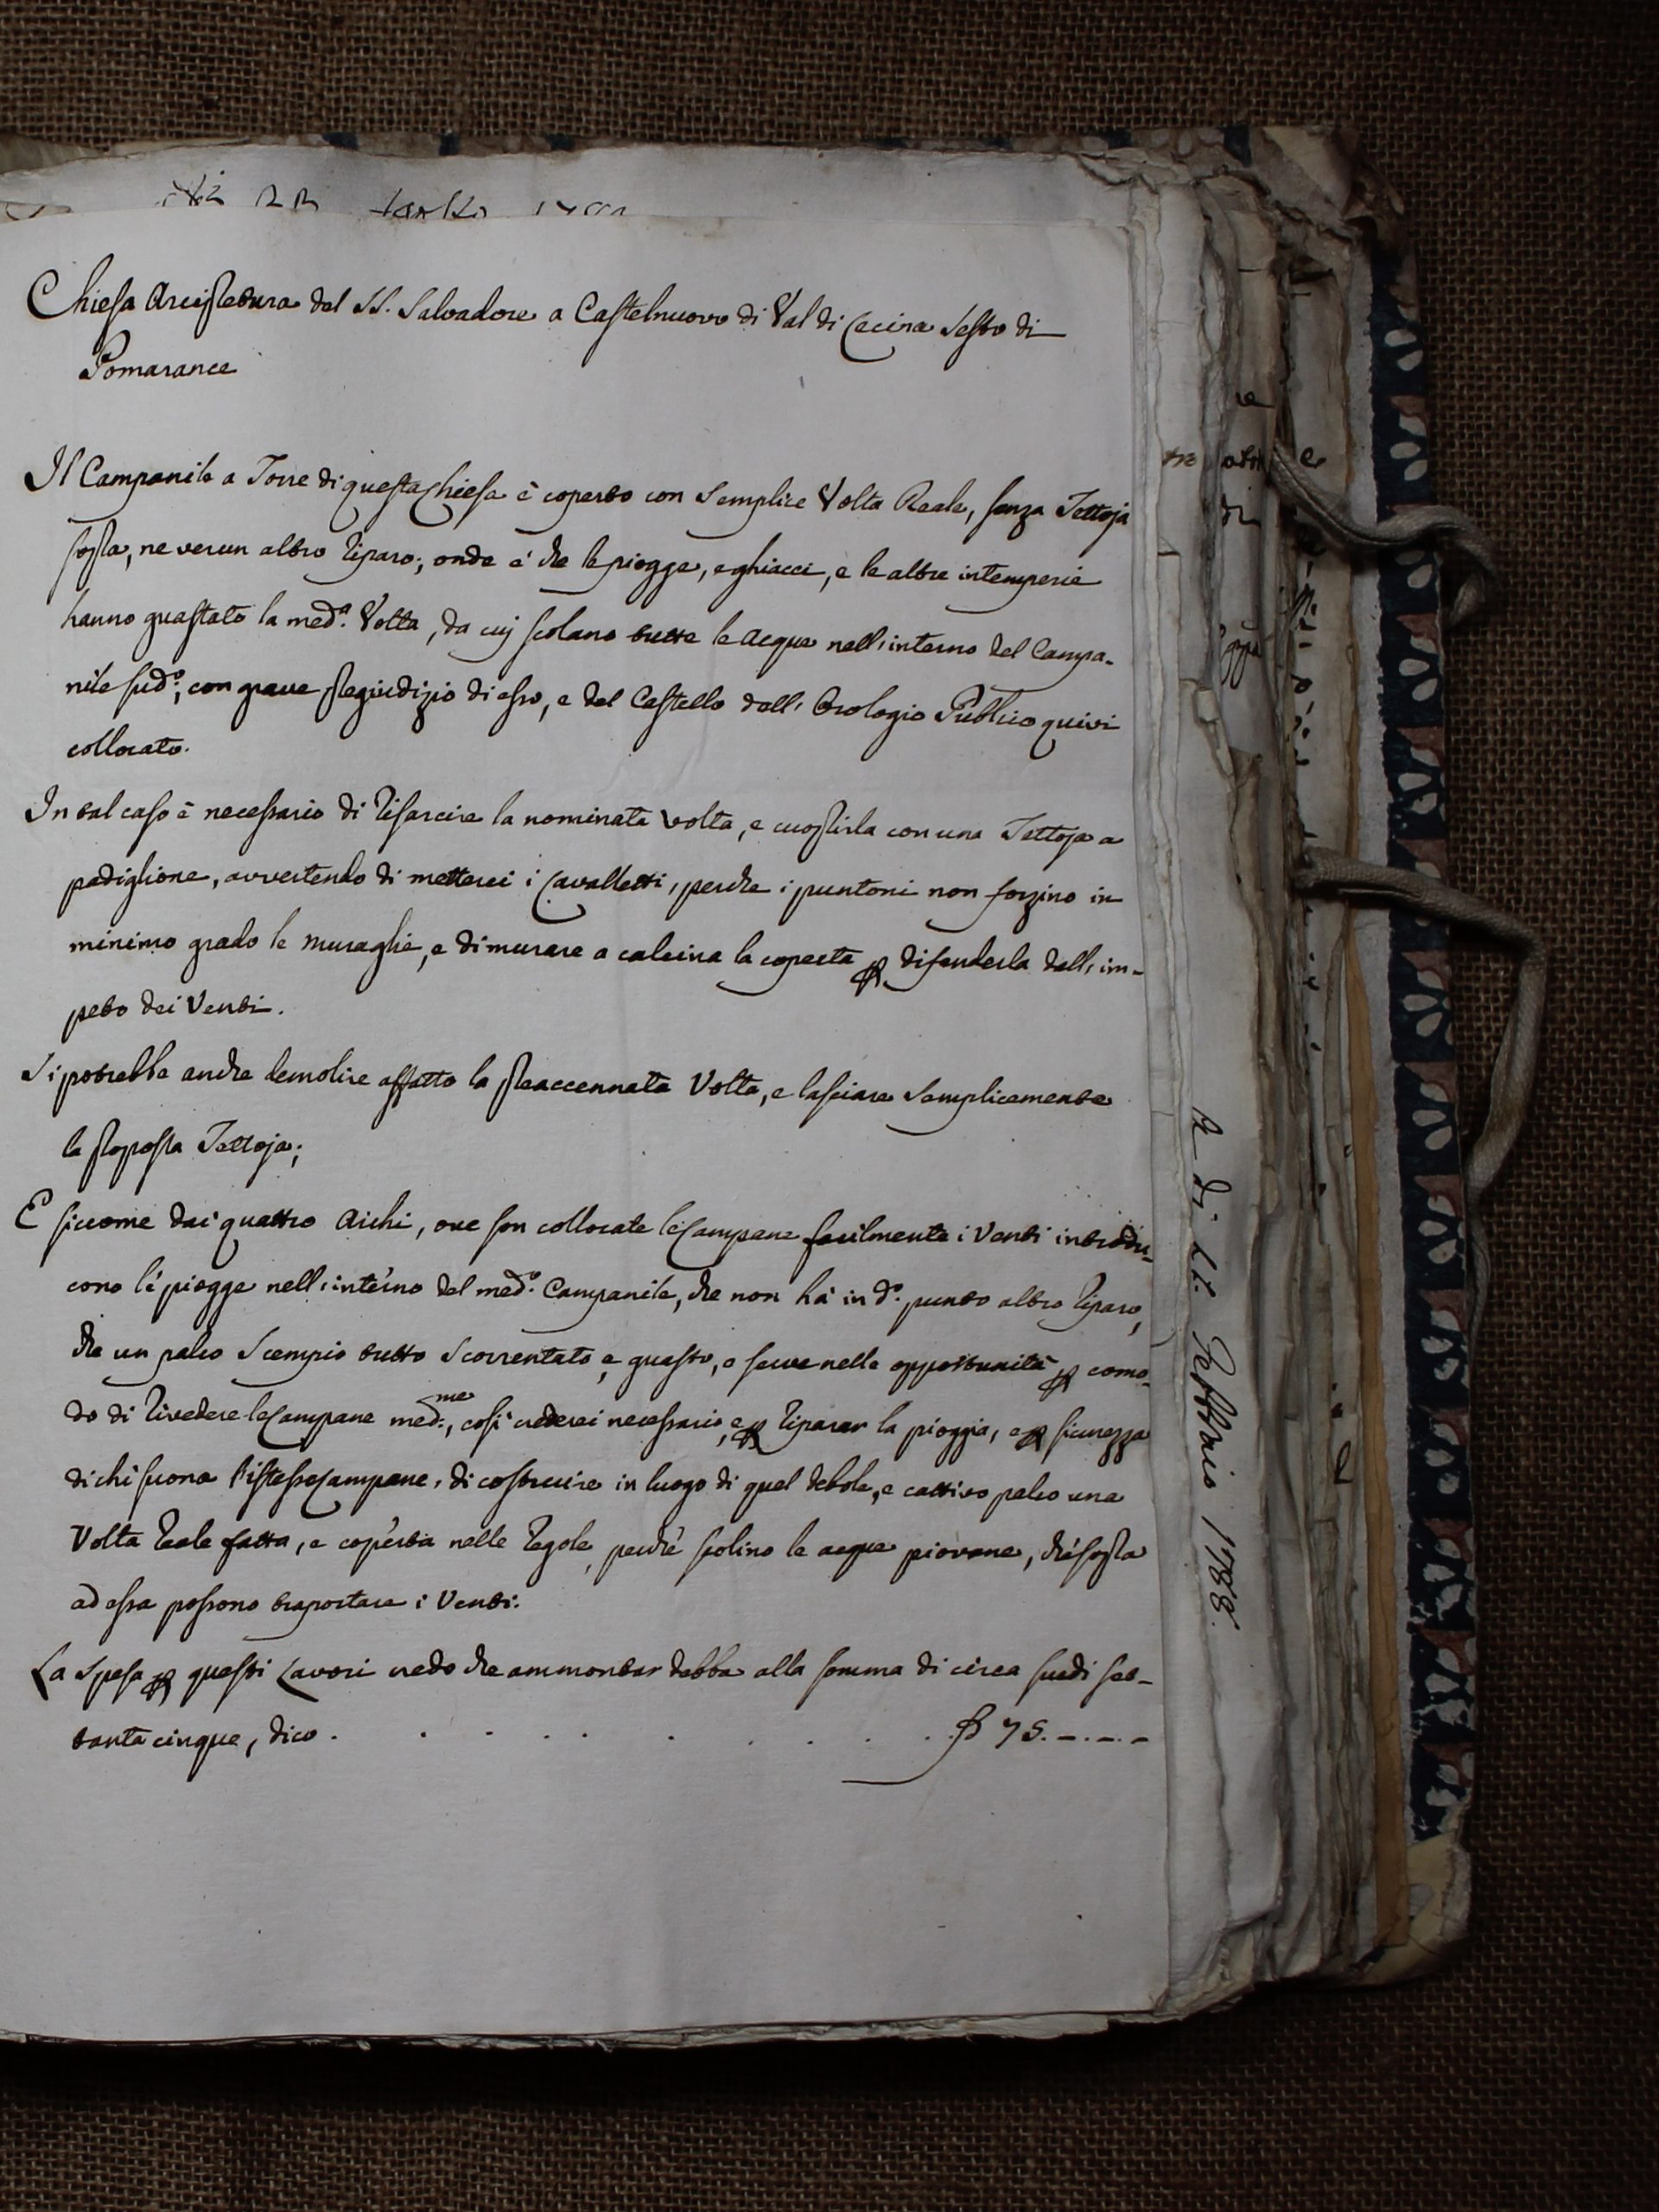 Chiesa Arcipretura del SS. Salvadore a Castelnuovo di Val di Cecina Sesto di
Pomarance
Il Campanile a Torre di questa Chiesa è coperto con semplice Volta Reale, senza Tettoja
sopra, ne verun altro riparo; onde è che le piogge, e ghiacci, e le altre intemperie
hanno guastato la med.a Volta, da cuj scolano tutte le acque nell'interno del Campa-
nile sud.o, con grave pregiudizio di esso, e del Castello dell'Orologio Publico quivi
collocato.
In tal caso è necessario di risarcire la nominata volta, e cuoprirla con una Tettoja a
padiglione, avvertendo di metterci i Cavalletti, perche i puntoni non forzino in
minimo grado le muraglie, e di murare a calcina la coperta p difenderla dall'im-
peto dei Venti.
Si potrebbe anche demolire affatto la preaccennata Volta, e lasciare semplicemente
la proposta Tettoja;
E siccome dai quattro Archi, ove son collocate le Campane facilmente i Venti introdu-
cono le piogge nell'interno del med.o Campanile, che non hà in d.o punto altro riparo,
che un palco scempio tutto scorrentato, e guasto, e serve nelle opportunità p como-
do di rivedere le Campane med.me, così crederei necessario, e p riparar la pioggia, e p sicurezza
di chi suona l'istesse Campane, di costruire in luogo di quel debole, e cattivo palco una
Volta reale fatta, e coperta nelle regole, perchè scolino le acque piovane, chè sopra
ad essa possono trasportare i Venti.
La spesa p questi lavori credo che ammontar debba alla somma di circa scudi set-
tanta cinque, dico . . . . . . . . . . 75.-.-.-
A di 21. Febbraio 1788.